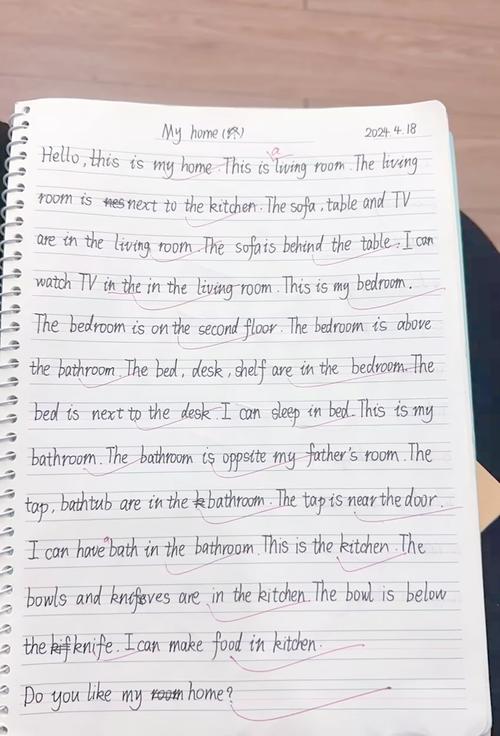 My home (终)
2024.4.18
Hello, this is my home. This is a living room. The living
room is next to the kitchen. The sofa, table and TV
are in the living room. The sofa is behind the table. I can
watch TV in the in the living room. This is my bedroom.
The bedroom is on the second floor. The bedroom is above
the bathroom. The bed, desk, shelf are in the bedroom. The
bed is next to the desk. I can sleep in bed. This is my
bathroom. The bathroom is oppsite my father's room. The
tap, bathtub are in the bathroom. The tap is near the door.
I can have a bath in the bathroom. This is the kitchen. The
bowls and knives are in the kitchen. The bowl is below
the knife. I can make food in kitchen.
Do you like my home?